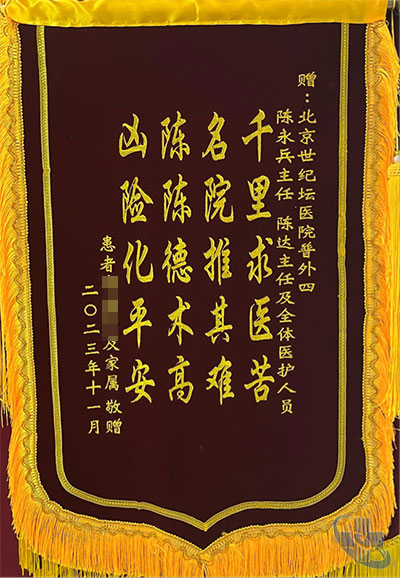 赠：北京世纪坛医院普外四
陈永兵主任 陈达主任及全体医护人员
千里求医苦
名院推其难
陈陈德术高
凶险化平安
患者 及家属 敬赠
二〇二三年十一月